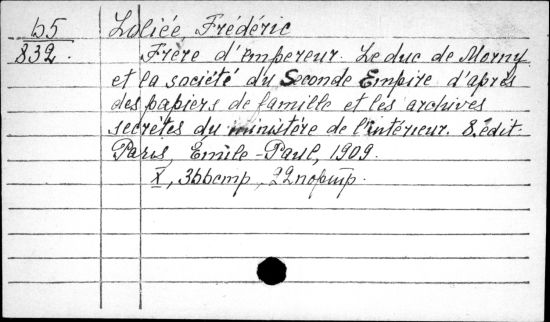 b5
832.
Loliée, Frédéric
Frère d'empereur. Le duc de Morny
et la société du Seconde Empire d'après
des papiers de famille et les archives
secrètes du ministère de l'intérieur. 8. édit.
Paris, Emile-Paul, 1909.
X, 366 стр, 22 портр.